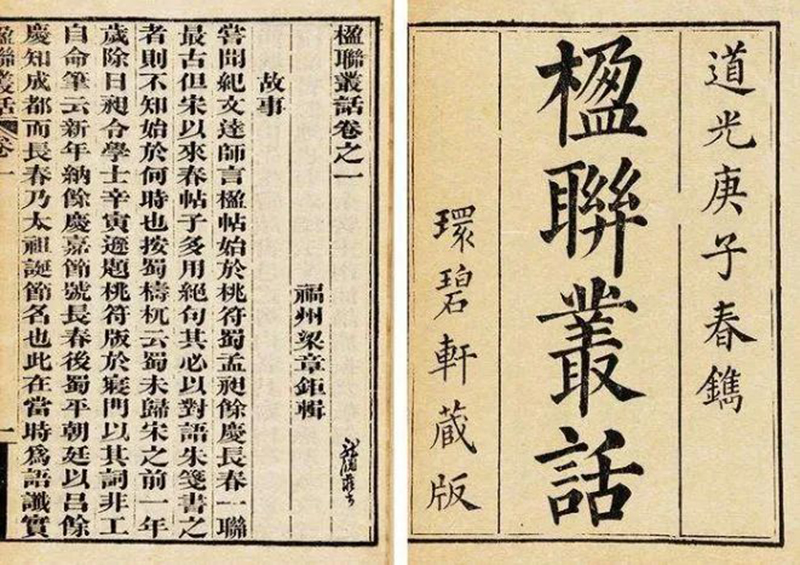 道光庚子春鐫
楹聯叢話
環碧軒蔵版
楹聯叢話卷之一
福州梁章鉅輯
故事
嘗聞紀文達師言楹帖始於桃符蜀孟昶餘慶長春一聯
最古但宋以來春帖子多用絕句其必以對語朱箋書之
者則不知始於何時也按蜀檮杌云蜀未歸宋之前一年
歲除日昶令學士辛寅遜題桃符版於寢門以其詞非工
自命筆云新年納餘慶嘉節號長春後蜀平朝廷以呂餘
慶知成都而長春乃太祖誕節名也此在當時爲語讖實
楹聯叢話 卷一 一